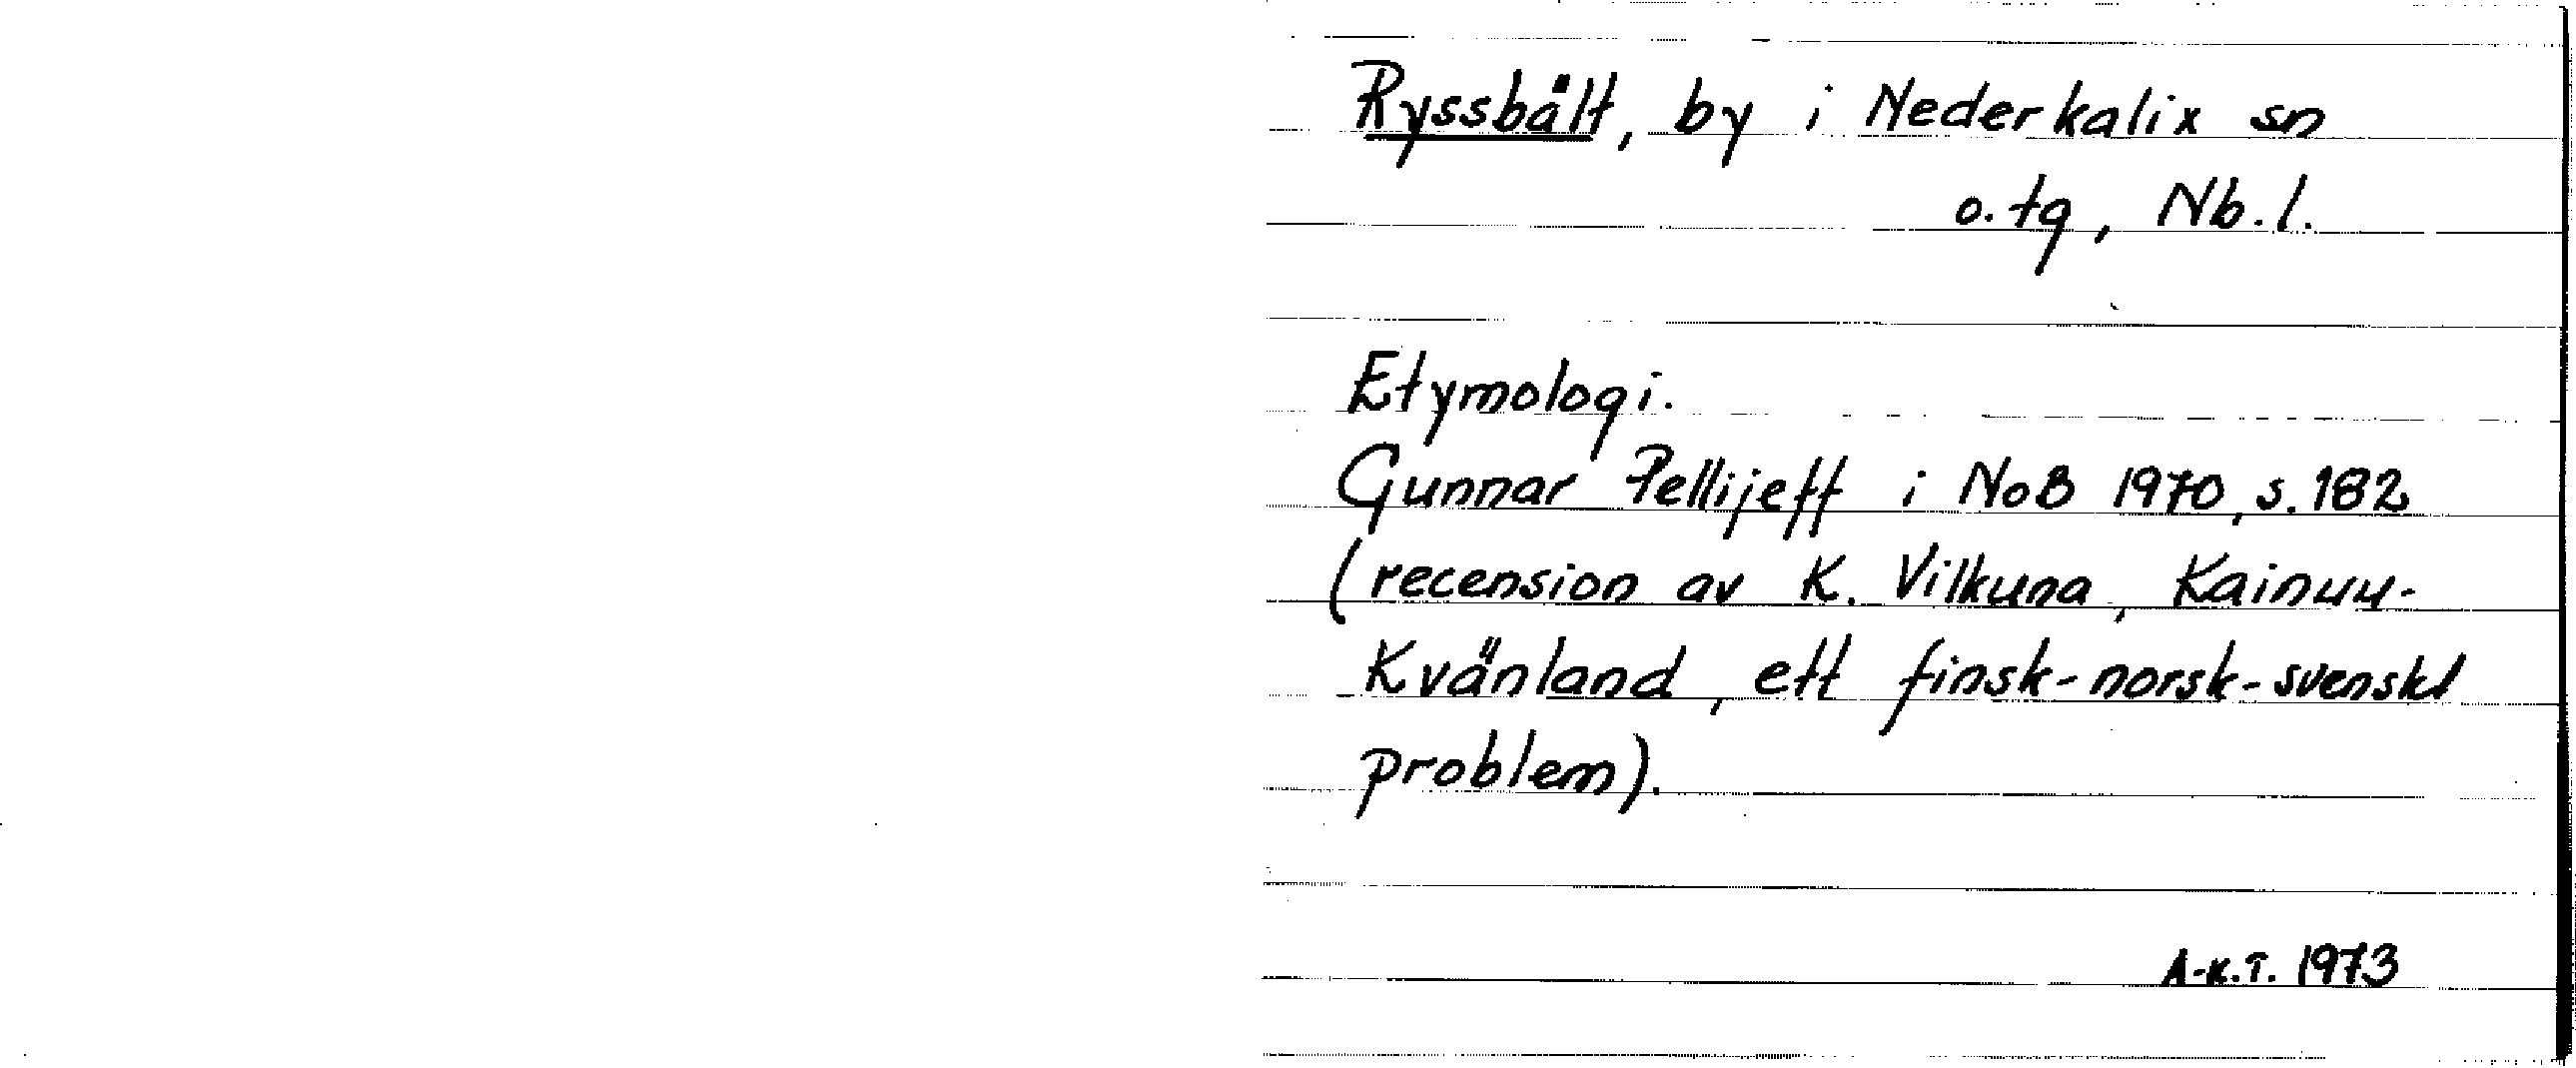 Ryssbält, by i Nederkalix sn
o. tg, Nb. l.
Etymologi.
Gunnar Pellijeff i NoB 1970, s. 182
(recension av K. Vilkuna, Kainuu-
Kvänland, ett finsk-norsk-svenskt
problem).
A-K.T. 1973